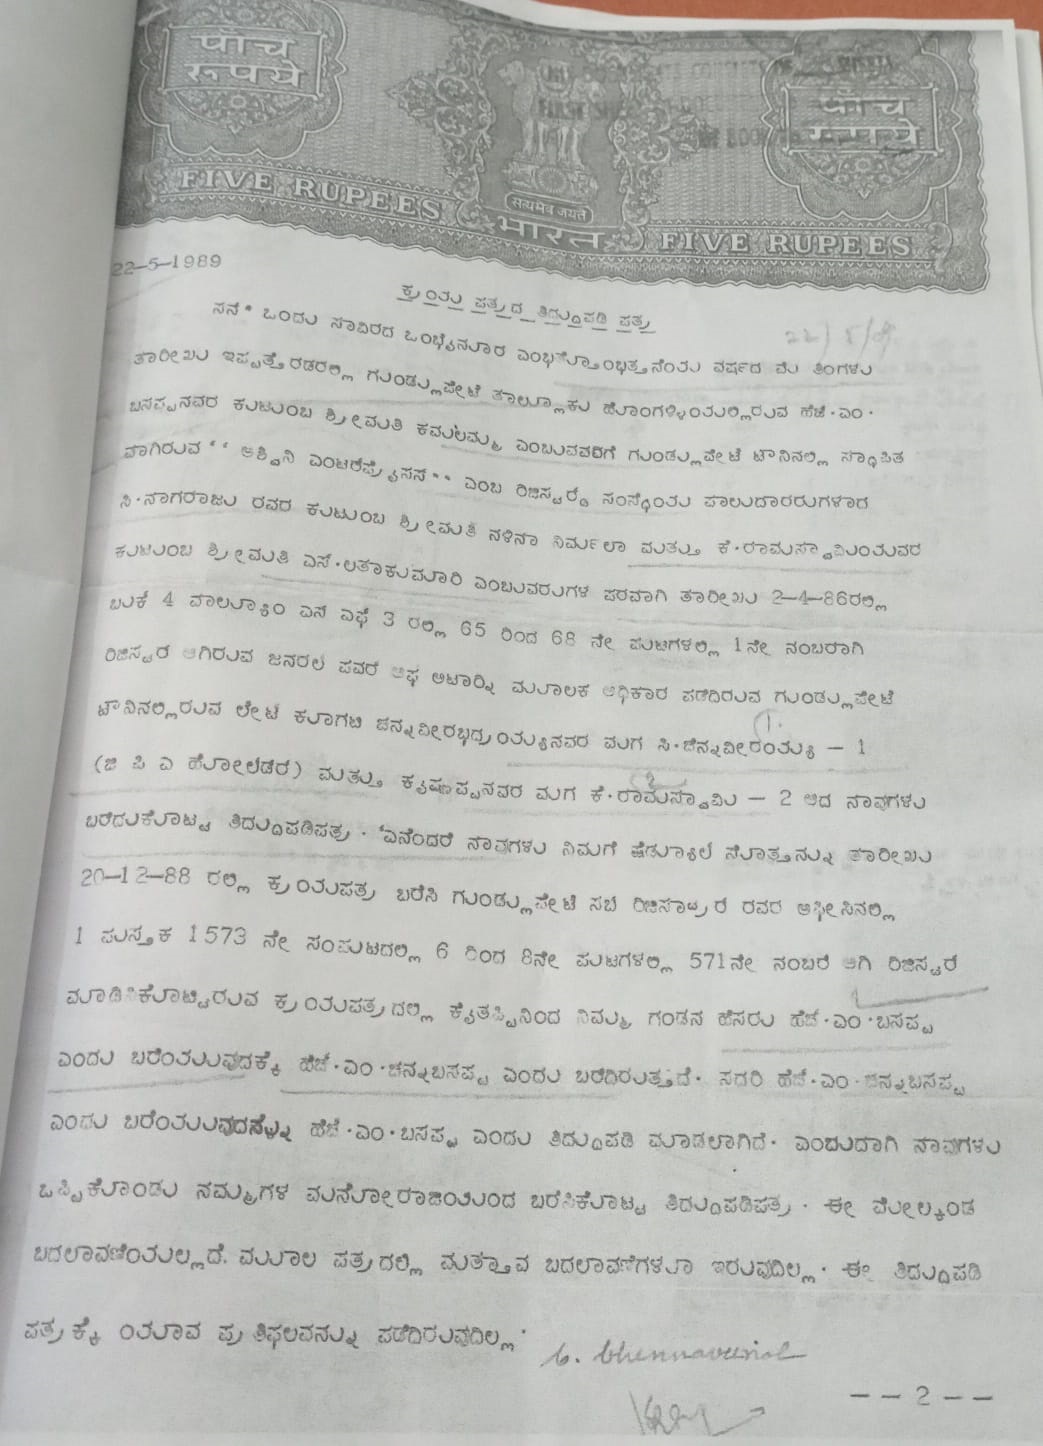 पाँच
रुपये
पाँच
रुपये
FIVE RUPEES
सत्यमेव जयते
भारत
FIVE RUPEES
22-5-1989
ಕ್ರಯ ಪತ್ರದ ತಿದ್ದುಪಡಿ ಪತ್ರ
22/5/89
ಸನ್ ಒಂದು ಸಾವಿರದ ಒಂಭೈನೂರ ಎಂಭತ್ತೊಂಭತ್ತನೆಯ ವರ್ಷದ ಮೆ ತಿಂಗಳು
ತಾರೀಖು ಇಪ್ಪತ್ತೆರಡರಲ್ಲಿ ಗುಂಡ್ಲುಪೇಟೆ ತಾಲ್ಲೂಕು ಹೊಂಗಳ್ಳಿಯಲ್ಲಿರುವ ಹೆಚ್.ಎಂ.
ಬಸಪ್ಪನವರ ಕುಟುಂಬ ಶ್ರೀಮತಿ ಕಮಲಮ್ಮ ಎಂಬುವವರಿಗೆ ಗುಂಡ್ಲುಪೇಟೆ ಟೌನಿನಲ್ಲಿ ಸ್ಥಾಪಿತ
ವಾಗಿರುವ '' ಅಶ್ವಿನಿ ಎಂಟರಪ್ರೈಸಸ್'' ಎಂಬ ರಿಜಿಸ್ಟರ್ಡ ಸಂಸ್ಥೆಯ ಪಾಲುದಾರರುಗಳಾದ
ಸಿ.ನಾಗರಾಜು ರವರ ಕುಟುಂಬ ಶ್ರೀಮತಿ ನಳಿನಾ ನಿರ್ಮಲಾ ಮತ್ತು ಕೆ.ರಾಮಸ್ವಾಮಿಯವರ
ಕುಟುಂಬ ಶ್ರೀಮತಿ ಎಸ್.ಲತಾಕುಮಾರಿ ಎಂಬುವರುಗಳ ಪರವಾಗಿ ತಾರೀಖು 2-4-86ರಲ್ಲಿ
ಬುಕ್ 4 ವಾಲ್ಯೂಂ ಎಸ್ ಎಫ್ 3 ರಲ್ಲಿ 65 ರಿಂದ 68 ನೇ ಪುಟಗಳಲ್ಲಿ 1ನೇ ನಂಬರಾಗಿ
ರಿಜಿಸ್ಟರ ಆಗಿರುವ ಜನರಲ್ ಪವರ್ ಆಫ್ ಅಟಾರ್ನಿ ಮೂಲಕ ಅಧಿಕಾರ ಪಡೆದಿರುವ ಗುಂಡ್ಲುಪೇಟೆ
ಟೌನಿನಲ್ಲಿರುವ ಲೇಟ್ ಕೂಗಟಿ ಚನ್ನವೀರಭದ್ರಯ್ಯನವರ ಮಗ ಸಿ.ಚೆನ್ನವೀರಯ್ಯ - 1
(ಜಿ ಪಿ ಎ ಹೋಲ್ಡರ್) ಮತ್ತು ಕೃಷ್ಣಪ್ಪನವರ ಮಗ ಕೆ.ರಾಮಸ್ವಾಮಿ - 2 ಆದ ನಾವುಗಳು
ಬರೆದುಕೊಟ್ಟ ತಿದ್ದುಪಡಿಪತ್ರ. ಏನೆಂದರೆ ನಾವುಗಳು ನಿಮಗೆ ಷೆಡ್ಯೂಲ್ ಸ್ವೊತ್ತನ್ನು ತಾರೀಖು
20-12-88 ರಲ್ಲಿ ಕ್ರಯಪತ್ರ ಬರೆಸಿ ಗುಂಡ್ಲುಪೇಟೆ ಸಬ್ ರಿಜಿಸ್ಟ್ರಾರ್ ರವರ ಆಫೀಸಿನಲ್ಲಿ
1 ಪುಸ್ತಕ 1573 ನೇ ಸಂಪುಟದಲ್ಲಿ 6 ರಿಂದ 8ನೇ ಪುಟಗಳಲ್ಲಿ 571ನೇ ನಂಬರ್ ಆಗಿ ರಿಜಿಸ್ಟರ್
ಮಾಡಿಸಿಕೊಟ್ಟಿರುವ ಕ್ರಯಪತ್ರದಲ್ಲಿ ಕೈತಪ್ಪಿನಿಂದ ನಿಮ್ಮ ಗಂಡನ ಹೆಸರು ಹೆಚ್.ಎಂ.ಬಸಪ್ಪ
ಎಂದು ಬರೆಯುವುದಕ್ಕೆ ಹೆಚ್.ಎಂ.ಚನ್ನಬಸಪ್ಪ ಎಂದು ಬರೆದಿರುತ್ತದೆ. ಸದರಿ ಹೆಚ್.ಎಂ.ಚನ್ನಬಸಪ್ಪ
ಎಂದು ಬರೆಯುವುದನ್ನು ಹೆಚ್.ಎಂ.ಬಸಪ್ಪ ಎಂದು ತಿದ್ದುಪಡಿ ಮಾಡಲಾಗಿದೆ. ಎಂಬುದಾಗಿ ನಾವುಗಳು
ಒಪ್ಪಿಕೊಂಡು ನಮ್ಮಗಳ ಮನೋರಾಜಿಯಿಂದ ಬರೆಸಿಕೊಟ್ಟ ತಿದ್ದುಪಡಿಪತ್ರ. ಈ ಮೇಲ್ಕಂಡ
ಬದಲಾವಣೆಯಲ್ಲದೆ. ಮೂಲ ಪತ್ರದಲ್ಲಿ ಮತ್ತಾವ ಬದಲಾವಣೆಗಳೂ ಇರುವುದಿಲ್ಲ. ಈ ತಿದ್ದುಪಡಿ
ಪತ್ರಕ್ಕೆ ಯಾವ ಪ್ರತಿಫಲವನ್ನು ಪಡೆದಿರುವುದಿಲ್ಲ.
-- 2 --